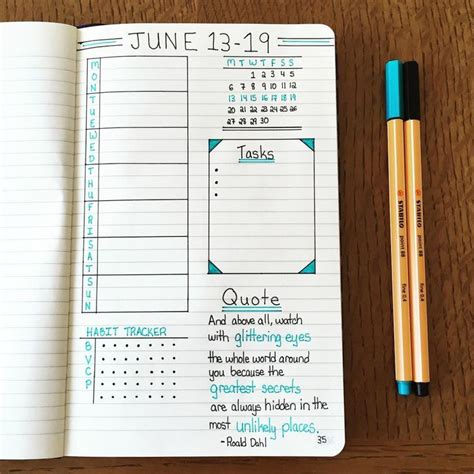 JUNE 13-19
MON
TUE
WED
THU
FRI
SAT
SUN
M T W T F S S
1 2 3 4 5
6 7 8 9 10 11 12
13 14 15 16 17 18 19
20 21 22 23 24 25 26
27 28 29 30
Tasks
HABIT TRACKER
B
V
C
P
Quote
And above all, watch
with glittering eyes
the whole world around
you because the
greatest secrets
are always hidden in the
most unlikely places.
-Roald Dahl
35
STABILO
point 88
fine 0.4
STABILO
point 88
fine 0.4